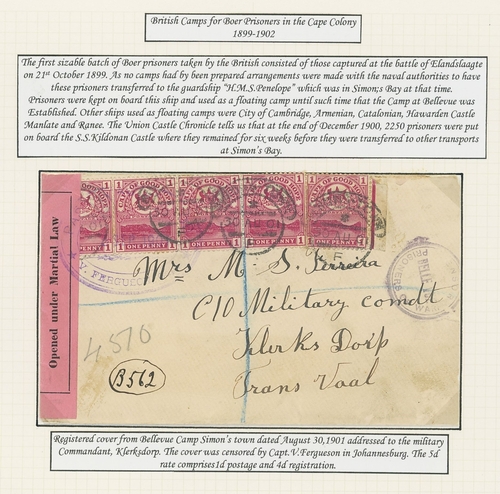 British Camps for Boer Prisoners in the Cape Colony
1899-1902
The first sizable batch of Boer prisoners taken by the British consisted of those captured at the battle of Elandslaagte
on 21st October 1899. As no camps had by been prepared arrangements were made with the naval authorities to have
these prisoners transferred to the guardship "H.M.S.Penelope" which was in Simon;s Bay at that time.
Prisoners were kept on board this ship and used as a floating camp until such time that the Camp at Bellevue was
Established. Other ships used as floating camps were City of Cambridge, Armenian, Catalonian, Hawarden Castle
Manlate and Ranee. The Union Castle Chronicle tells us that at the end of December 1900, 2250 prisoners were put
on board the S.S.Kildonan Castle where they remained for six weeks before they were transferred to other transports
at Simon's Bay.
1 CAPE OF GOOD HOPE 1
ONE PENNY
1 CAPE OF GOOD HOPE 1
ONE PENNY
1 CAPE OF GOOD HOPE 1
ONE PENNY
1 CAPE OF GOOD HOPE 1
ONE PENNY
1 CAPE OF GOOD HOPE 1
ONE PENNY
Opened under Martial Law
V. FERGUS
PRISONERS
WAR
Mrs M. S. Ferreira
C/O Military comdt
Klerks Dorp
Trans Vaal
4510
B562
Registered cover from Bellevue Camp Simon's town dated August 30,1901 addressed to the military
Commandant, Klerksdorp. The cover was censored by Capt.V.Ferguson in Johannesburg. The 5d
rate comprises1d postage and 4d registration.